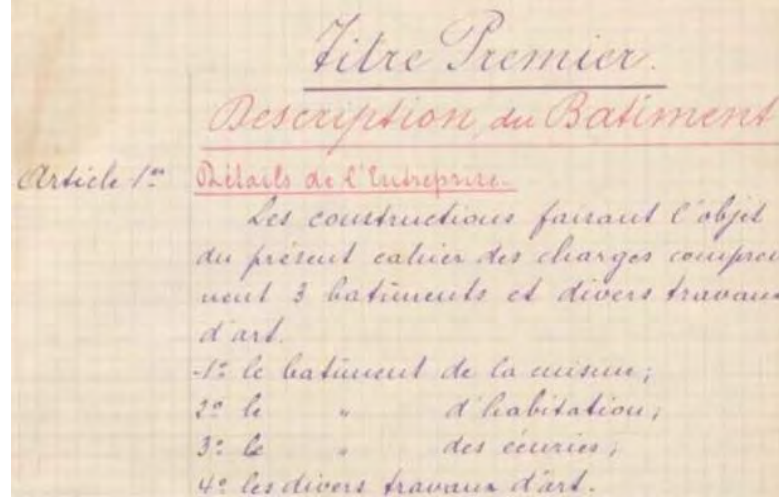 Titre Premier.
Description du Batiment
Article 1er Détails de l'Entreprise.
Les constructions faisant l'objet
du présent cahier des charges compren
nent 3 batiments et divers travaux
d'art.
1º le batiment de la usine;
2º le " d'habitation;
3º le " des écuries;
4º les divers travaux d'art.